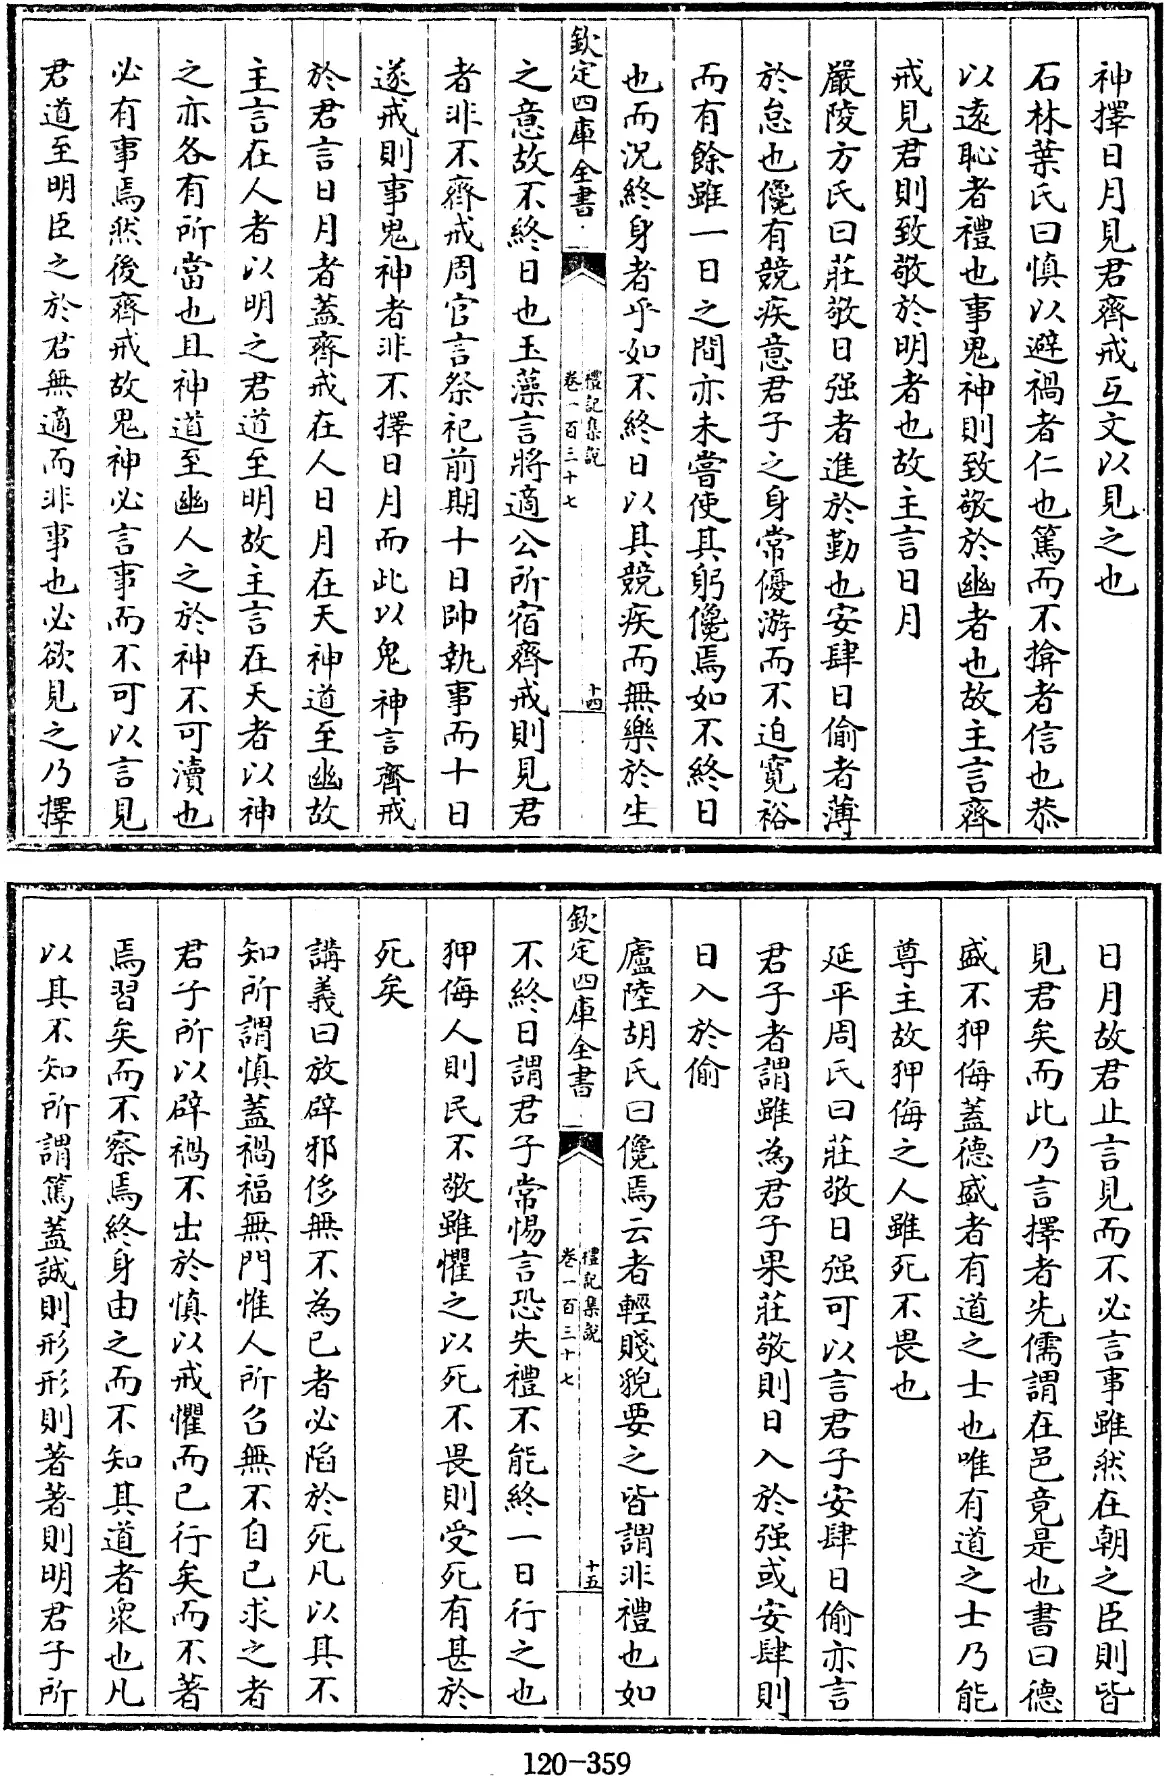 神擇日月見君齊戒互文以見之也
石林葉氏曰慎以避禍者仁也篤而不揜者信也恭
以遠恥者禮也事鬼神則致敬於幽者也故主言齊
戒見君則致敬於明者也故主言日月
嚴陵方氏曰莊敬日强者進於勤也安肆日偷者薄
於怠也儳有競疾意君子之身常優游而不迫寛裕
而有餘雖一日之間亦未嘗使其躬儳焉如不終日
也而況終身者乎如不終日以其競疾而無樂於生
欽定四庫全書
禮記集說
卷一百三十七
十四
之意故不終日也玉藻言將適公所宿齊戒則見君
者非不齊戒周官言祭祀前期十日帥執事而十日
遂戒則事鬼神者非不擇日月而此以鬼神言齊戒
於君言日月者蓋齊戒在人日月在天神道至幽故
主言在人者以明之君道至明故主言在天者以神
之亦各有所當也且神道至幽人之於神不可瀆也
必有事焉然後齊戒故鬼神必言事而不可以言見
君道至明臣之於君無適而非事也必欲見之乃擇
日月故君止言見而不必言事雖然在朝之臣則皆
見君矣而此乃言擇者先儒謂在邑竟是也書曰德
盛不狎侮蓋德盛者有道之士也唯有道之士乃能
尊主故狎侮之人雖死不畏也
延平周氏曰莊敬日强可以言君子安肆日偷亦言
君子者謂雖為君子果莊敬則日入於强或安肆則
日入於偷
廬陵胡氏曰儳焉云者輕賤貌要之皆謂非禮也如
欽定四庫全書
禮記集說
卷一百三十七
十五
不終日謂君子常惕言恐失禮不能終一日行之也
狎侮人則民不敬雖懼之以死不畏則受死有甚於
死矣
講義曰放辟邪侈無不為已者必陷於死凡以其不
知所謂慎蓋禍福無門惟人所召無不自已求之者
君子所以辟禍不出於慎以戒懼而已行矣而不著
焉習矣而不察焉終身由之而不知其道者衆也凡
以其不知所謂篤蓋誠則形形則著著則明君子所
120-359